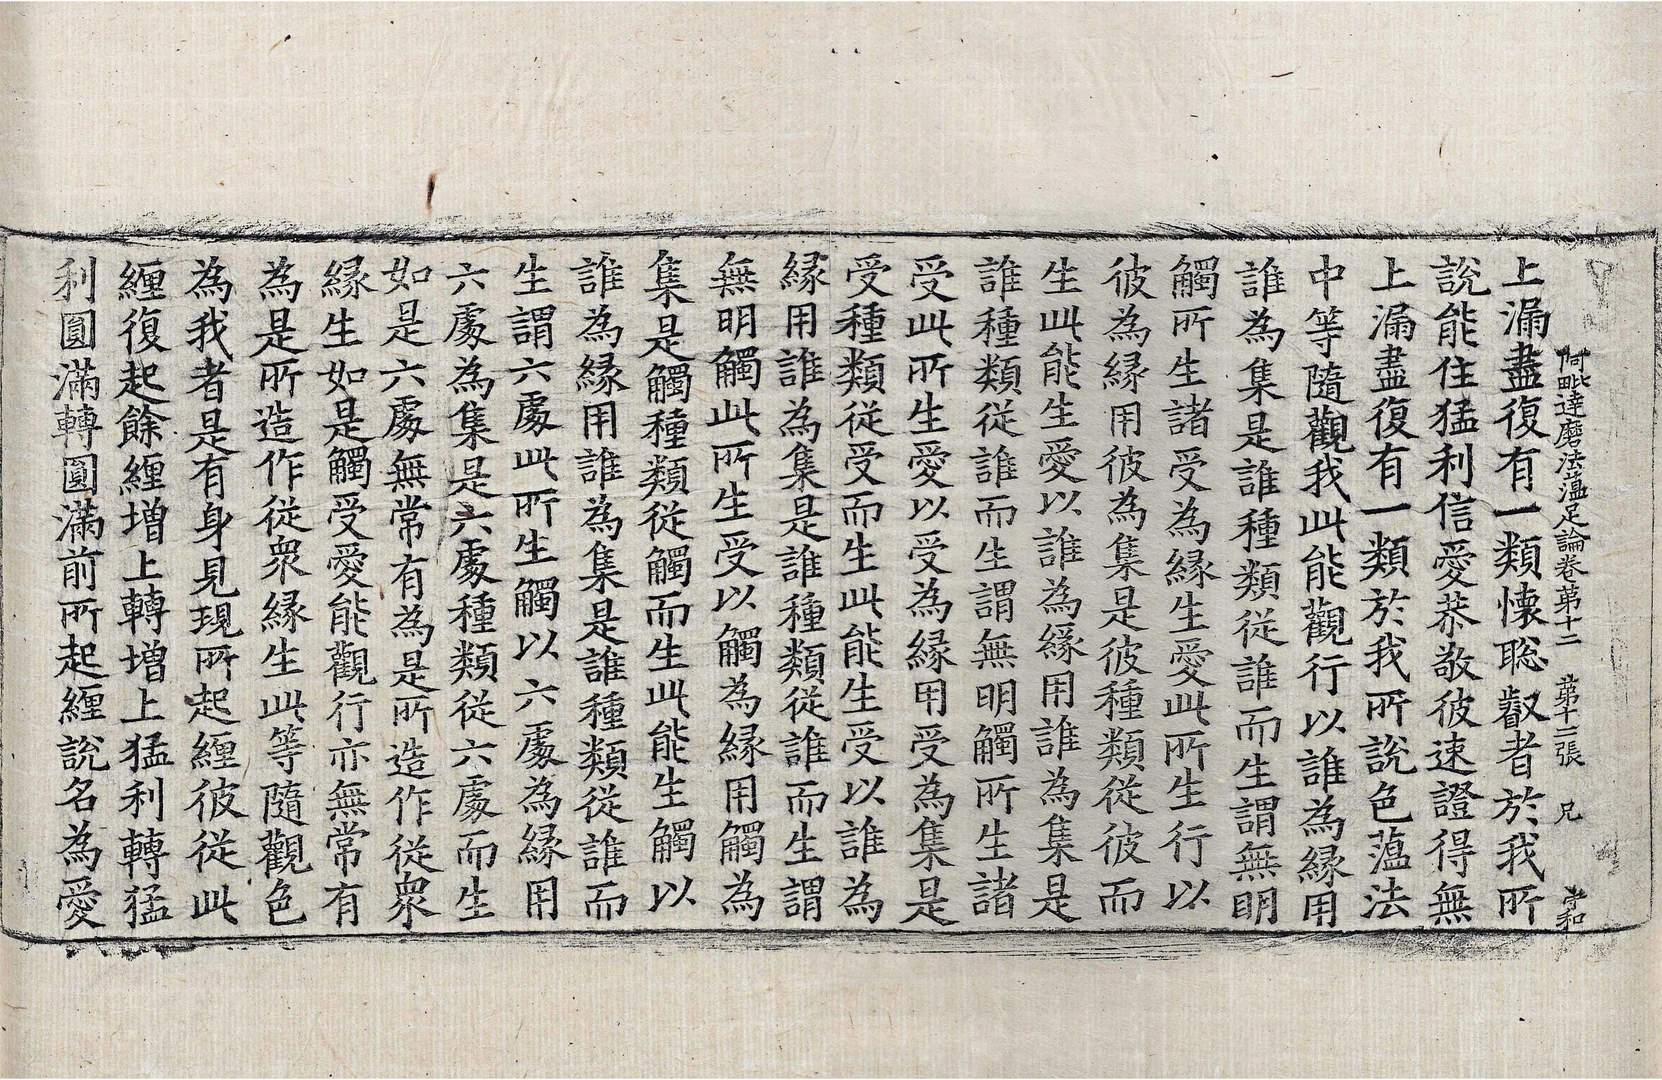 阿毗達磨法蘊足論卷第十二　第十二張　兄　
上漏盡復有一類懷聡叡者於我所
說能住猛利信愛恭敬彼速證得無
上漏盡復有一類於我所說色蕰法
中等隨觀我此能觀行以誰為緣用
誰為集是誰種類從誰而生謂無明
觸所生諸受為緣生愛此所生行以
彼為緣用彼為集是彼種類從彼而
生此能生愛以誰為緣用誰為集是
誰種類從誰而生謂無明觸所生諸
受此所生愛以受為緣用受為集是
受種類從受而生此能生受以誰為
緣用誰為集是誰種類從誰而生謂
無明觸此所生受以觸為緣用觸為
集是觸種類從觸而生此能生觸以
誰為緣用誰為集是誰種類從誰而
生謂六處此所生觸以六處為緣用
六處為集是六處種類從六處而生
如是六處無常有為是所造作從衆
緣生如是觸受愛能觀行亦無常有
為是所造作從衆緣生此等隨觀色
為我者是有身見現所起纏彼從此
纏復起餘纏增上轉增上猛利轉猛
利圓滿轉圓滿前所起纏說名為愛